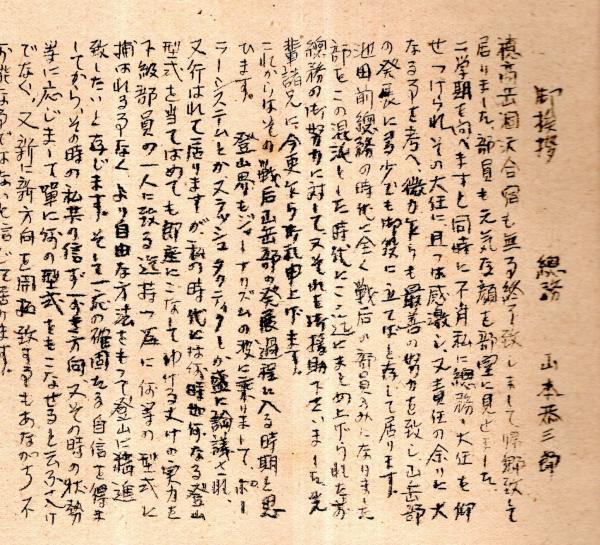 御挨拶　　總務　山本恭三郎
穂高岳涸沢合宿も無事終了致しまして帰郷致して
居りました部員も元気な顔を部室に見せました。
二学期を向へますと同時に不肖私に總務の大任を仰
せつけられ、その大任に且つは感激し、又責任の余りに大
なる事を考へ、微力ながらも最善の努力を致し山岳部
の発展に多少でも御役に立てばと存じて居ります。
池田前總務の時代に全く戦后の部員のみになりました
部をこの混沌とした時代にここ迄にまとめ上げられた前
總務の御努力に対して又それを御援助下さいました先
輩諸兄に、今更ながら御礼申上げます。
これからはその戦后山岳部の発展過程に入る時期と思
ひます。登山界もジャーナリズムの波に乗りまして、ポー
ラーシステムとか又ラッシュタクティクとか盛に論議され、
又行はれて居りますが、私の時代には何時如何なる登山
型式を当てはめても即座にこなしてゆける丈けの実力を
下級部員の一人に致る迄持つ為に何等の型式に
捕はれる事なく、より自由な方法をもつて登山に精進
致したいと存じます。そして一応の確固たる自信を得ま
してから、その時の私共の信ずべき方向、又その時の状勢
等に応じまして、単に何の型式をもこなせると云ふだけ
でなく、又新に新方向を開拓致す事もあながち不
可能な事ではないと信じて居ります。